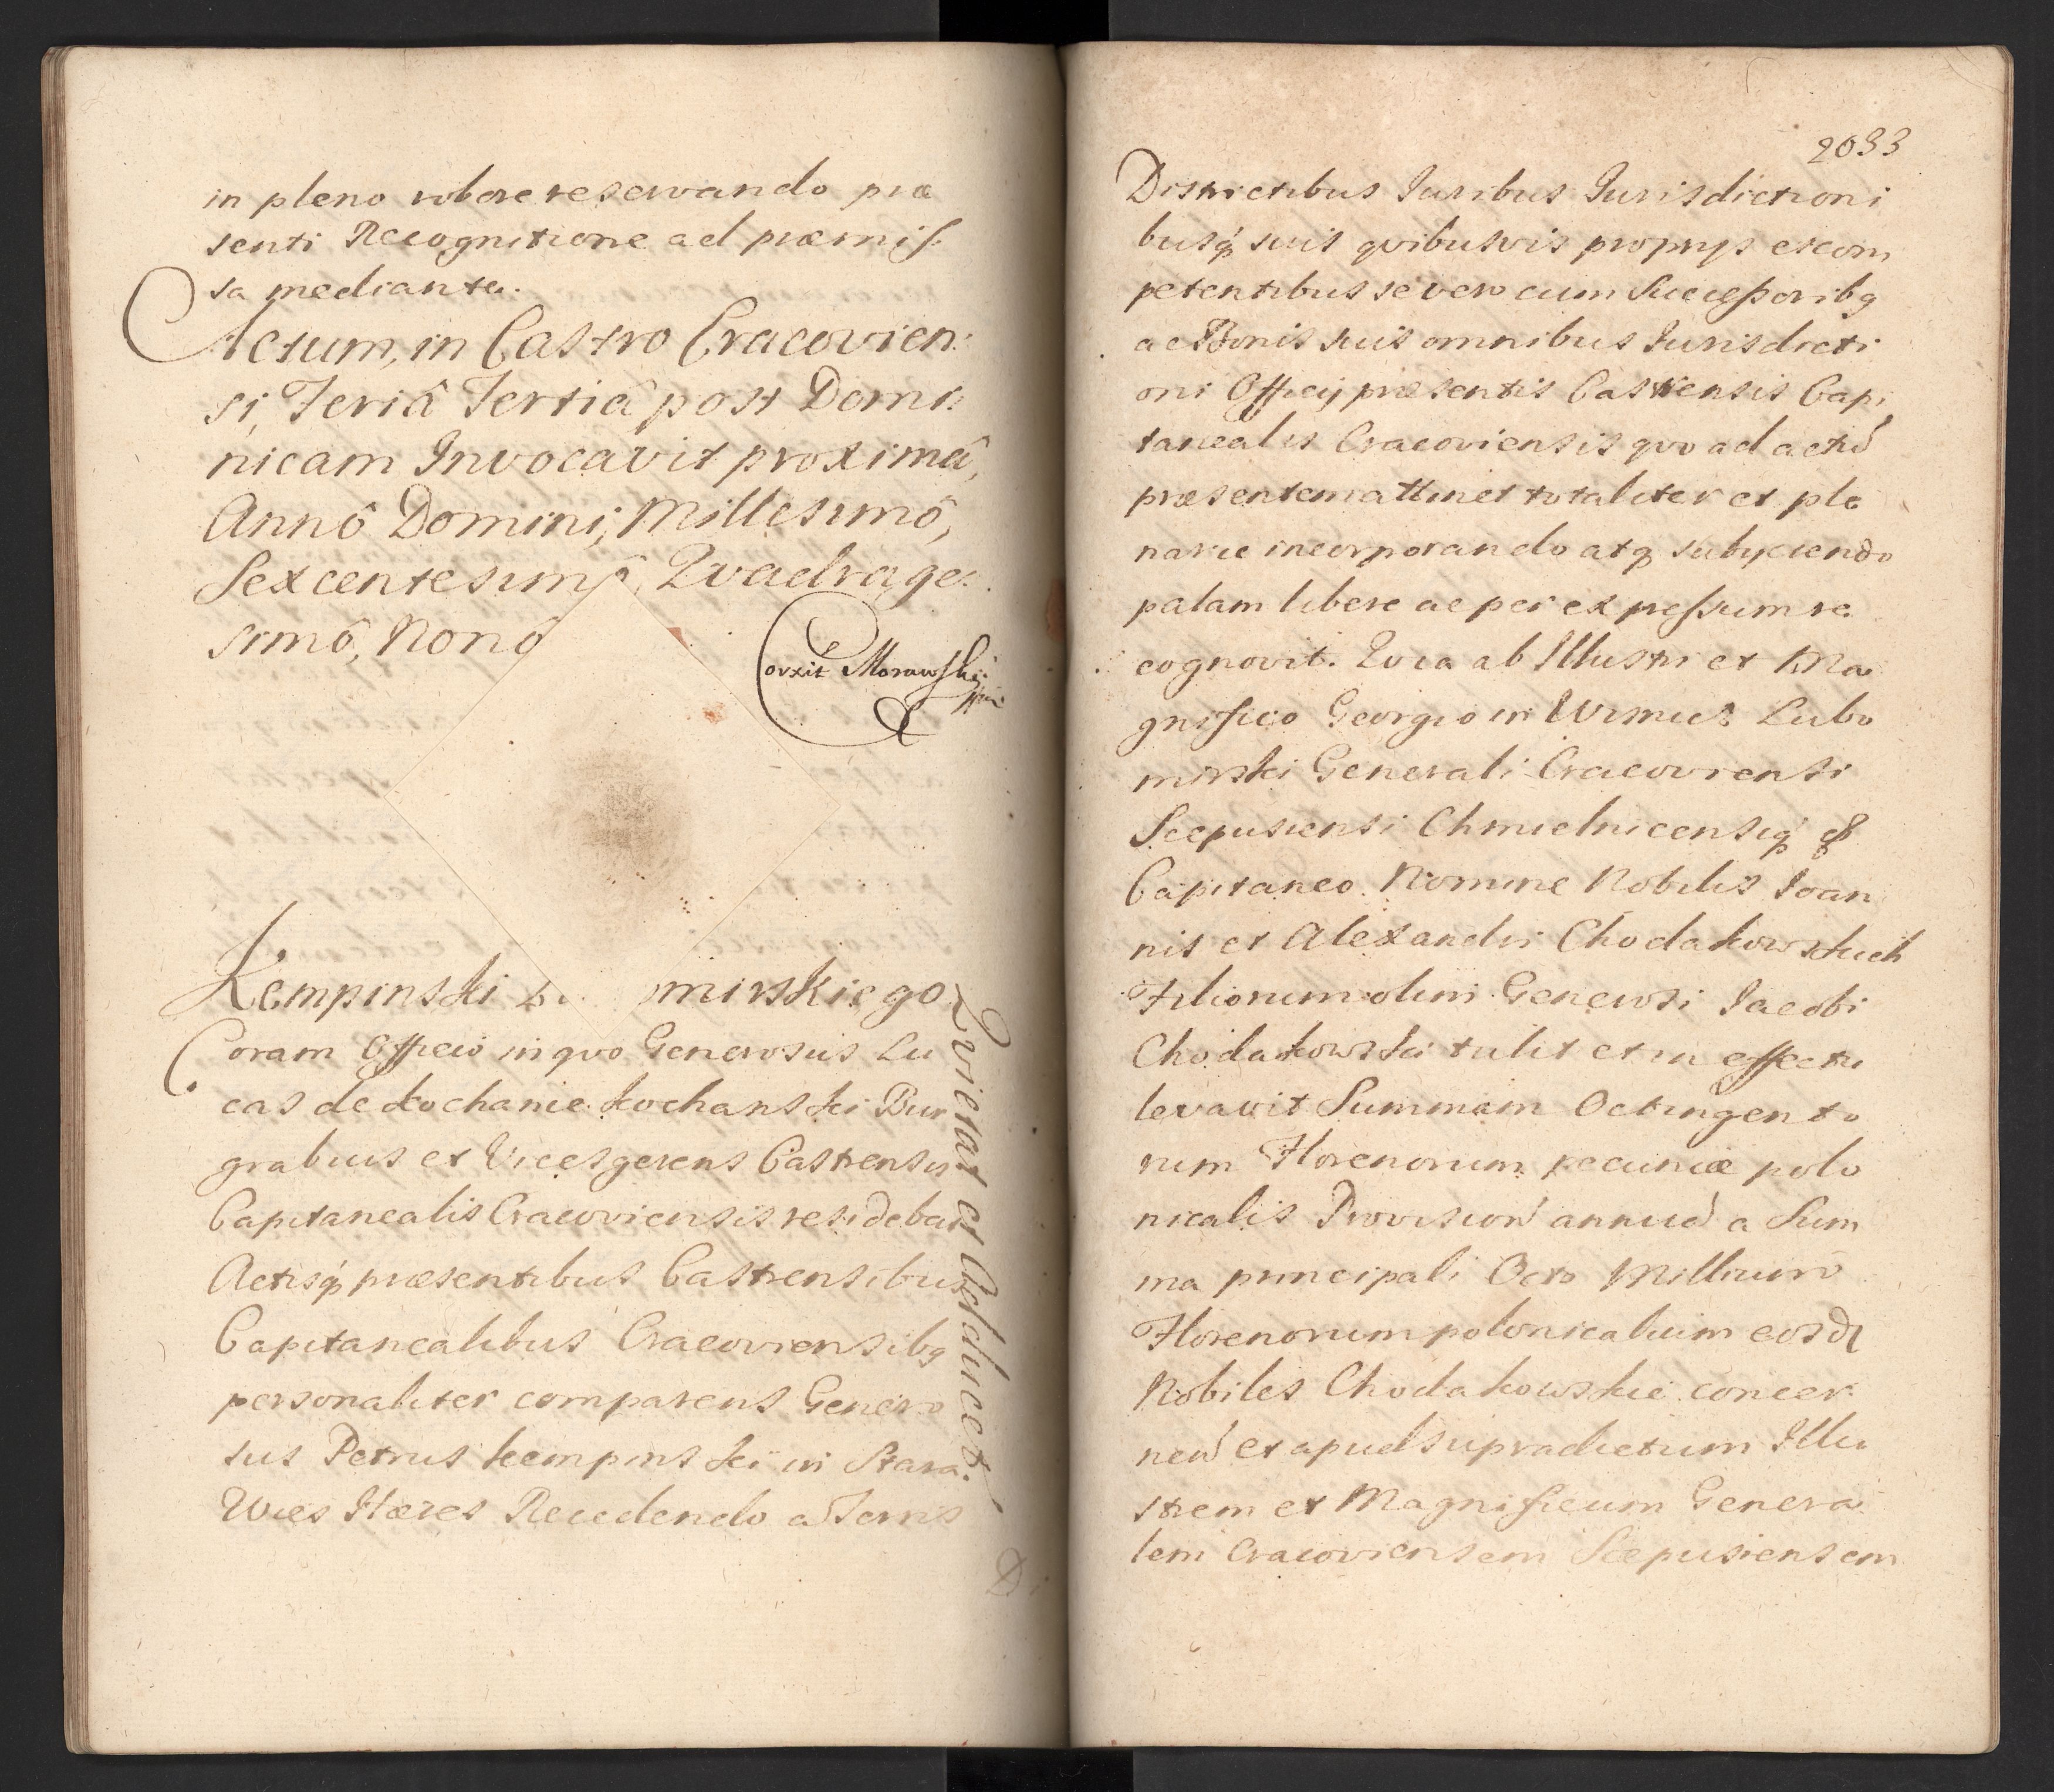 in pleno robore reservando præ
senti Recognitione ad præmis
sa mediante.
Actum, in Castro Cracovien:
si, Feriâ Tertiâ post Domi:
nicam Invocavit proximâ,
Annô Domini, Millesimô,
Sexcentesimô, Qvadrage:
simô, Nonô
Corxit Morawskj
Kempinski mirskiego
Qvietat et Abducet
Coram Officio in qvo Generosus Lu
cas de Kochanie Kochanski Bur
grabius et Vicesgerens Castrensis
Capitanealis Cracoviensis residebat
Actisq́ præsentibus Castrensibus
Capitanealibus Cracoviensibq
personaliter comparens Genero
sus Petrus Kempinski in Stara
Wies Hæres Recedendo a Terris
Di
2033
Districtibus Juribus Jurisdictioni
busq́ suis qvibusvis proprys et com
petentibus se vero cum Successoribq
ac Bonis suis omnibus Jurisdicti
oni Officy præsentis Castrensis Capi
tanealis Cracoviensis qvo ad actū
præsentem attinet totaliter et ple
narie incorporando atq subyciendo
palam libere ac per expressum re
cognovit. Qvia ab Illustri et Ma
gnifico Georgio in Wisnicz Lubo
mirski Generali Cracoviensi
Scepusiensi Chmielnicensiq́
Capitaneo. Nomine Nobilis Joan
nis et Alexandri Chodakowskich
Filiorum olim Generosi Jacobi
Chodakowski tulit et in effectu
levavit Summam Octingento
rum Florenorum pecuniæ polo
nicalis Provision̄ annuā a Sum
ma principali Octo Millium
Florenorum polonicalium eosd
Nobiles Chodakowskie concer
nen̄ et apud supradictum Illu
strem et Magnificum Genera
lem Cracoviensem Scepusiensem